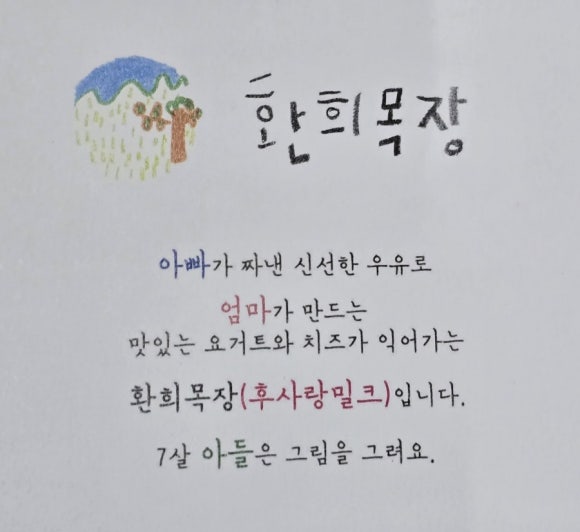 환희목장
아빠가 짜낸 신선한 우유로
엄마가 만드는
맛있는 요거트와 치즈가 익어가는
환희목장(후사랑밀크)입니다.
7살 아들은 그림을 그려요.